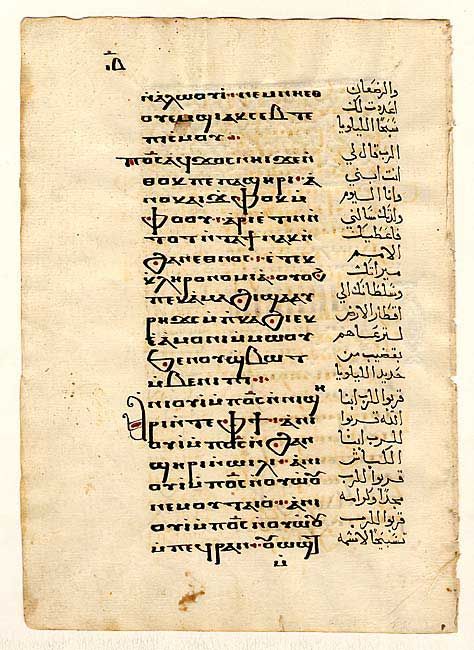 ⲓⲇ
ⲛⲁⲭⲱⲟⲩⲓ ⲛⲉⲙ ⲛⲉⲑ
ⲟⲩⲉⲙⲓ ⲁⲕⲥⲉⲃⲧⲉ
ⲡⲓⲥⲙⲟⲩ
ⲡⲟ̅ⲥ̅ ⲁϥϫⲟⲥ ⲛⲏⲓ ϫⲉ ⲛ
ⲑⲟⲕ ⲡⲉ ⲡⲁϣⲏⲣⲓ · ⲁ
ⲛⲟⲕ ⲁⲓϫⲫⲟⲕ ⲙ
ⲫⲟⲟⲩ · ⲁⲣⲓⲉⲧⲓⲛ ⲛ
ⲧⲟⲧ ⲓⲧⲁϯ ⲛⲁⲕ ⲛ
ϩⲁⲛⲉⲑⲛⲟⲥ · ⲉⲧⲉⲕ
ⲕⲗⲏⲣⲟⲛⲟⲙⲓⲁ · ⲟⲩⲟϩ
ⲡⲉⲕⲁⲙⲁϩⲓ ϣⲁ ⲁⲩ
ⲣⲏϫⲥ ⲙⲡⲕⲁϩⲓ ⲉⲕ
ⲉⲁⲙⲟⲛⲓ ⲙⲙⲱⲟⲩ
ϧⲉⲛ ⲟⲩϣⲃⲱⲧ
ⲙⲃⲉⲛⲓⲡⲓ ·
ⲁⲛⲓⲟⲩⲓ ⲙⲡⲟ̅ⲥ̅ ⲛⲓϣⲏ
ⲣⲓ ⲛⲧⲉ ⲫϯ · ⲁⲛⲓ
ⲟⲩⲓ ⲙⲡⲟ̅ⲥ̅ ⲛϩⲁⲛ
ϣⲏⲣⲓ ⲛⲱⲓⲗⲓ · ⲁⲛⲓ
ⲟⲩⲓ ⲙⲡⲟ̅ⲥ̅ ⲛⲟⲩⲱⲟⲩ
ⲛⲉⲙ ⲟⲩⲧⲁⲓⲟ · ⲁⲛⲓ
ⲟⲩⲓ ⲙⲡⲟ̅ⲥ̅ ⲛⲟⲩⲱⲟⲩ
ⲙⲡⲉϥⲣⲁⲛ · ⲟⲩⲱϣⲧ
ⲙ
والرضعان
اعددت لك
سبحا الليلويا
الرب قال لي
انت ابني
وانا اليوم
ولدتك سالني
فاعطيك
الامم
ميراتك
وسلطانك الي
اقطار الارض
لترعاهم
بقضيب من
حديد الليلويا
قربوا للرب ابنا
الله قربوا
للرب ابنا
الكباش
قربوا للرب
مجدا وكرامه
قربوا للرب
تسبيحا لاسمه